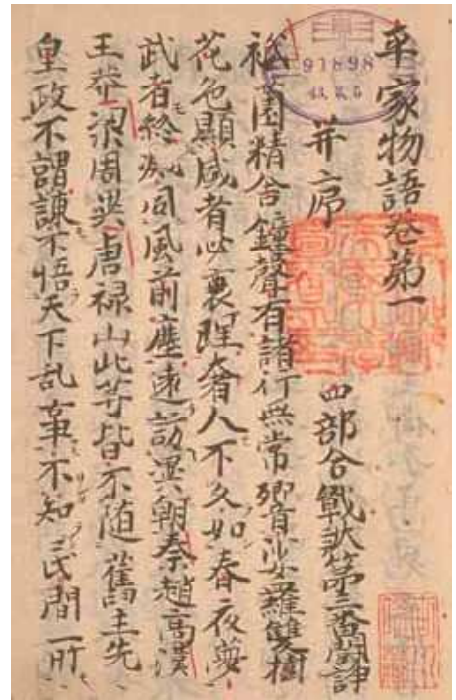 平家物語巻第一
并序 四部合戰狀第三番闘諍
祇園精舎鐘聲有諸行無常響沙羅雙樹
花色顯盛者必衰理奢人不久如春夜夢
武者終滅同風前塵遠訪漢朝秦趙高漢
王莽梁周异唐禄山此等皆不随舊主先
皇政不謂諫不悟天下乱事不知民間所
91898